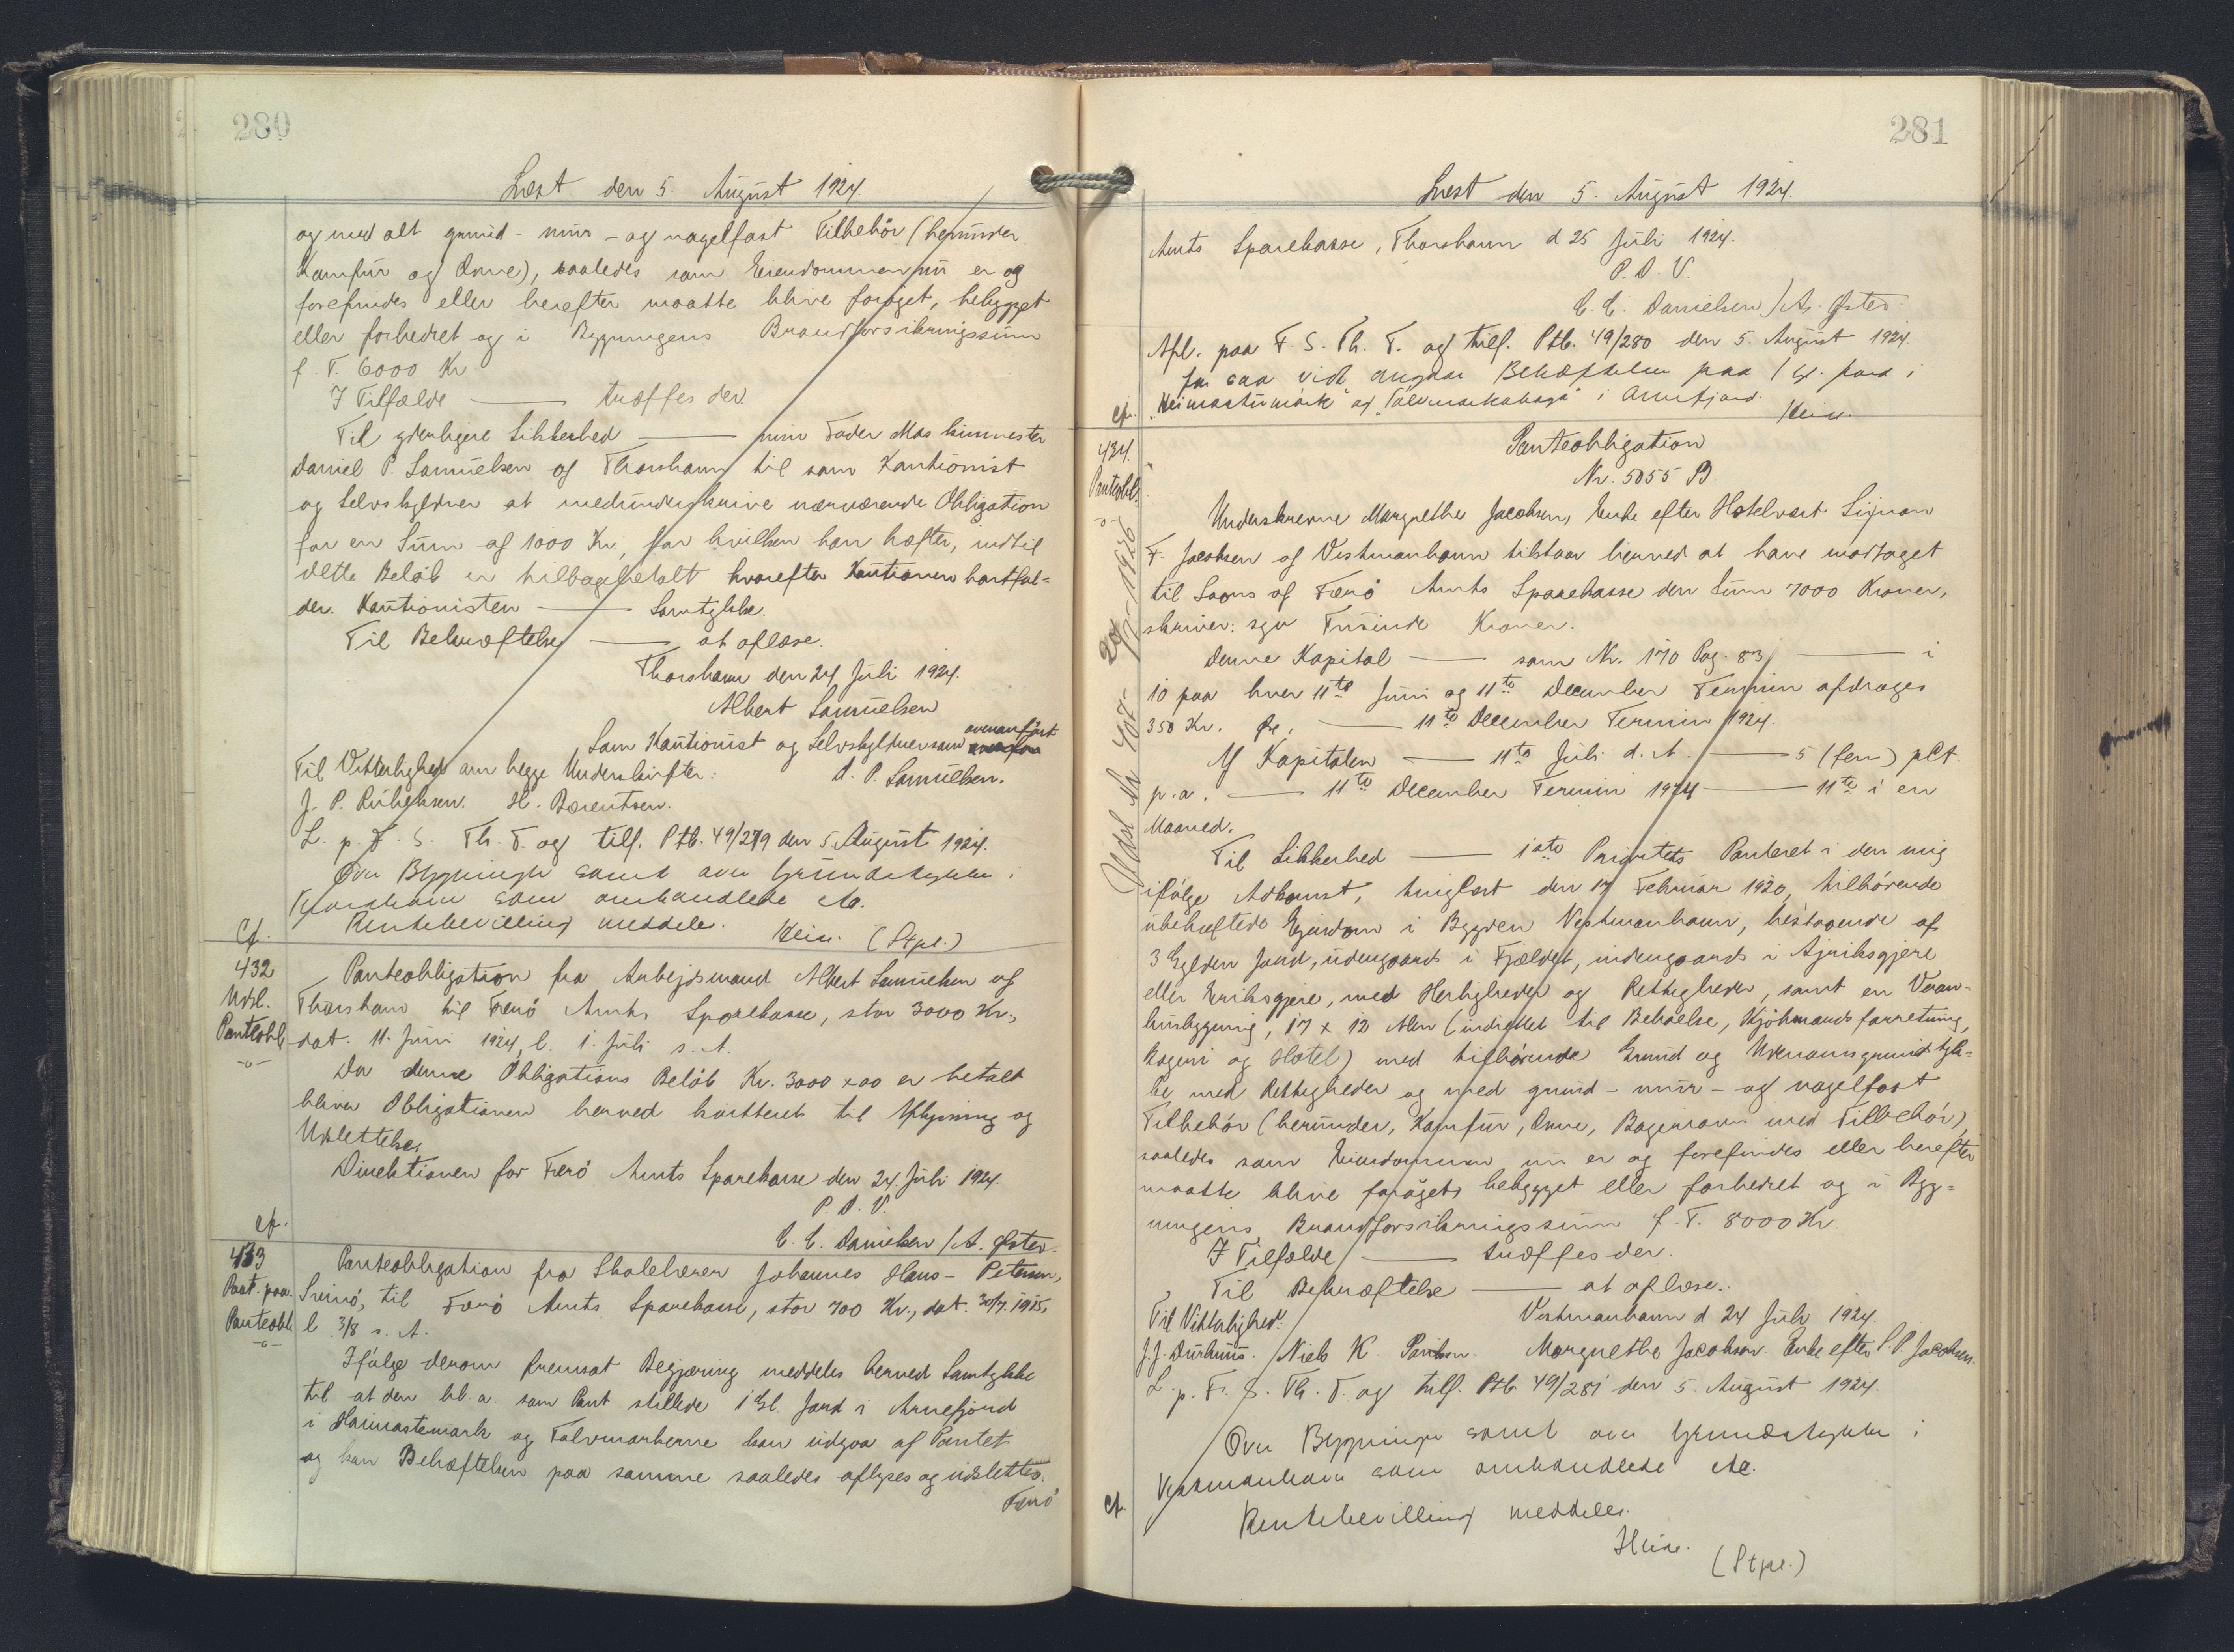 280
Læst den 5. August 1924.
og med alt grund- mur- og nagelfast Tilbehör (herunder
Komfur og Ovne), saaledes som Eiendommen nu er og
forefindes eller herefter maatte blive foröget, bebygget
eller forbedret og i Bygningens Brandforsikringssum
f. T. 6000 Kr.
I Tilfælde —— træffes der.
Til yderligere Sikkerhed —— min Fader Maskinmester
Daniel P. Samuelsen af Thorshavn til som Kautionist
og Selvskyldner at medunderskrive nærværende Obligation
for en Sum af 1000 Kr., for hvilken han hæfter, indtil
dette Beløb er tilbagebetalt hvorefter Kautionen bortfal-
der. Kautionisten —— Samtykke.
Til Bekræftelse —— at aflæse.
Thorshavn den 24 Juli 1924.
Albert Samuelsen
Som Kautionist og Selvskyldner som ovenanfört
Til Vitterlighed om begge Underskrifter: D. P. Samuelsen.
J. P. H. Bærentsen.
L. p. F. S. Th. T. og tilf. Ptb. 49/279 den 5 August 1924.
Over Bygningen samt over Grundstykket i
Thorshavn som omhandlede etc.
Rentebevilling meddeles. Heise. (Stpl.)
cf.
432
Udsl.
Panteobl.
Panteobligation fra Arbejdsmand Albert Samuelsen af
Thorshavn til Færö Amts Sparekasse, stor 3000 Kr.,
dat. 11. Juni 1924, l. 1. Juli s. A.
Da denne Obligations Beløb Kr. 3000 x 00 er betalt
bliver Obligationen herved kvitteret til Aflysning og
Udslettelse.
Direktionen for Færö Amts Sparekasse den 24. Juli 1924.
P. D. V.
C. C. Danielsen / A. Øster.
cf.
433
Paat. paa
Panteobl.
Panteobligation fra Skolelærer Johannes Hans-Petersen,
til Færö Amts Sparekasse, stor 700 Kr., dat. 30/7. 1915,
l. 3/8 s. A.
Ifölge derom fremsat Begjæring meddeles herved Samtykke
til at den bl. a. som Pant stillede 1 Gl. Jord i Arnefjord
i Haimastemark og Tolvmarkerne kan udgaa af Pantet
og kan Behæftelsen paa samme saaledes aflyses og udslettes.
Færö
281
Læst den 5. August 1924.
Amts Sparekasse, Thorshavn d 25 Juli 1924.
P. D. V.
C. C. Danielsen / A. Øster
Afl. paa F. S. Th. T. og tilf. Ptb. 49/280 den 5. August 1924
for saa vidt angaar Behæftelsen paa 1 Gl. Jord i
"Heimastumörk" og i Arnefjord.
Heise.
cf.
434.
Panteobl.
Panteobligation
Nr. 5055 B.
Underskrevne Margrethe Jacobsen, Enke efter Hotelvært
F. Jacobsen af Vestmanhavn tilstaar herved at have modtaget
til Laans af Færö Amts Sparekasse den Sum 7000 Kroner,
skriver: syv Tusinde Kroner.
Denne Kapital —— som Nr. 170 Pag. 83 —— i
10 paa hver 11te Juni og 11te December Termin afdrages
350 Kr. —— 11te December Termin 1924.
Af Kapitalen —— 11te Juli d. A. —— 5 (fem) pCt.
p. a. —— 11te December Termin 1924 —— 11te i en
Maaned.
Til Sikkerhed —— 1ste Prioritets Panteret i den mig
ifölge Adkomst, tinglæst den 17 Februar 1920, tilhörende
ubehæftede Ejendom i Bygden Vestmanhavn, bestaaende af
3 Gylden Jord, udengaards i Fjeldet, indengaards i Ajriksgjere
eller Eriksgjere, med Herligheder og Rettigheder, samt en Vaan-
husbygning, 17 x 12 Alen (indrettet til Beboelse, Kjöbmandsforretning,
Bageri og Hotel) med tilhörende Grund og Udenomsgrundstyk-
ke med Rettigheder og med grund- mur- og nagelfast
Tilbehör (herunder, Komfur, Ovne, Bagerovn med Tilbehör),
saaledes som Eiendommen nu er og forefindes eller herefter
maatte blive foröget, bebygget eller forbedret og i Byg-
ningens Brandforsikringssum f. T. 8000 Kr.
I Tilfælde —— træffes der.
Til Bekræftelse —— at aflæse.
Til Vitterlighed: Vestmanhavn d 24 Juli 1924.
J. J. Durhuus. / Niels K. Margrethe Jacobsen. Enke efter S. F. Jacobsen.
L. p. F. S. Th. T. og tilf. Ptb. 49/281 den 5. August 1924.
Over Bygningen samt over Grundstykket i
Vestmanhavn som omhandlede etc.
cf.
Rentebevilling meddeles.
Heise.
(Stpl.)